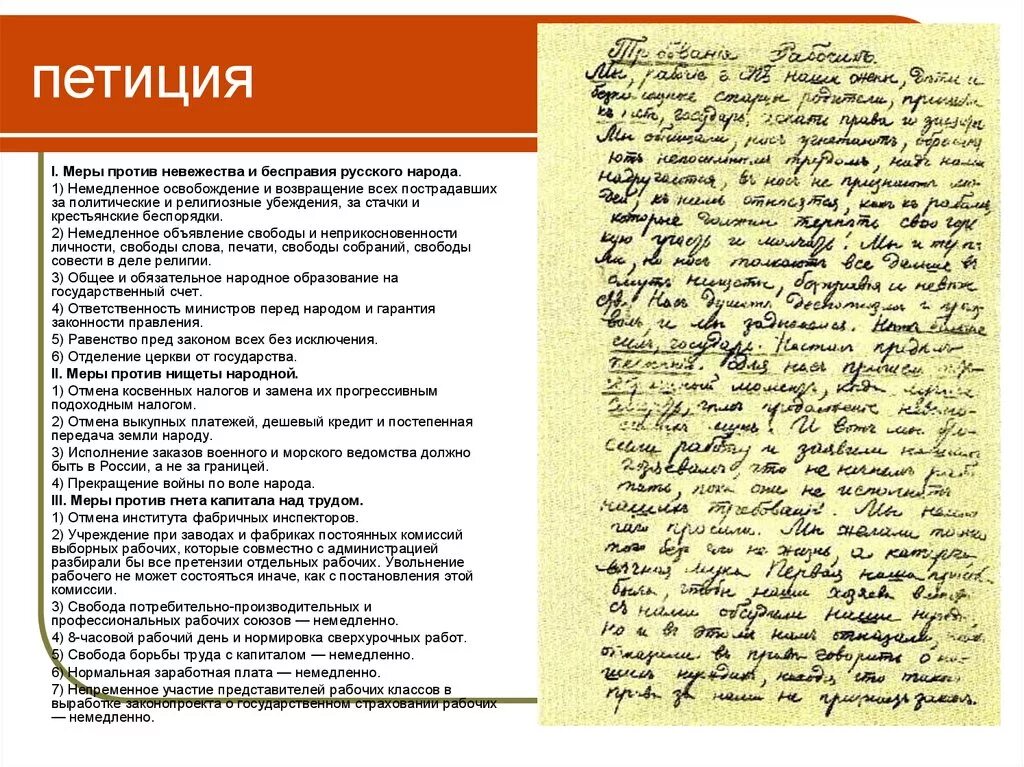 петиция
I. Меры против невежества и бесправия русского народа.
1) Немедленное освобождение и возвращение всех пострадавших
за политические и религиозные убеждения, за стачки и
крестьянские беспорядки.
2) Немедленное объявление свободы и неприкосновенности
личности, свободы слова, печати, свободы собраний, свободы
совести в деле религии.
3) Общее и обязательное народное образование на
государственный счет.
4) Ответственность министров перед народом и гарантия
законности правления.
5) Равенство пред законом всех без исключения.
6) Отделение церкви от государства.
II. Меры против нищеты народной.
1) Отмена косвенных налогов и замена их прогрессивным
подоходным налогом.
2) Отмена выкупных платежей, дешевый кредит и постепенная
передача земли народу.
3) Исполнение заказов военного и морского ведомства должно
быть в России, а не за границей.
4) Прекращение войны по воле народа.
III. Меры против гнета капитала над трудом.
1) Отмена института фабричных инспекторов.
2) Учреждение при заводах и фабриках постоянных комиссий
выборных рабочих, которые совместно с администрацией
разбирали бы все претензии отдельных рабочих. Увольнение
рабочего не может состояться иначе, как с постановления этой
комиссии.
3) Свобода потребительно-производительных и
профессиональных рабочих союзов — немедленно.
4) 8-часовой рабочий день и нормировка сверхурочных работ.
5) Свобода борьбы труда с капиталом — немедленно.
6) Нормальная заработная плата — немедленно.
7) Непременное участие представителей рабочих классов в
выработке законопроекта о государственном страховании рабочих
— немедленно.
Требованія Рабочихъ.
Мы, рабочіе г. наши жены, дѣти и
старцы родители, пришли
къ тебѣ, государь, искать права и защиты
Мы обнищали, насъ угнетаютъ,
ютъ непосильнымъ трудомъ, надъ нами
надругаются, въ насъ не признаютъ лю
дей, къ намъ относятся, какъ къ рабамъ,
которые должны терпѣть свою горь
кую участь и молчать! Мы и терпѣ
ли, но насъ толкаютъ все дальше въ
омутъ нищеты, безправія и невѣже
ства. Насъ душитъ деспотизмъ и произ
волъ, и мы задыхаемся. Нѣтъ больше
силъ, государь. Насталъ предѣлъ
терпѣнію. Для насъ пришелъ
моментъ, когда лучше
смерть, продолженіе
мукъ. И вотъ мы бро
сили работу и заявили нашимъ
хозяевамъ, что не начнемъ рабо
тать, пока они не исполнятъ
нашихъ требованій. Мы немно
гаго просили. Мы желали только
того безъ чего не жизнь, а каторга
вѣчная мука. Первая наша просьба
была, чтобы наши хозяева вмѣстѣ
съ нами обсудили наши нужды
Но и въ этомъ намъ отказали, намъ
отказали въ правѣ говорить о на
шихъ нуждахъ, находя что такого
права за нами не признаетъ законъ.